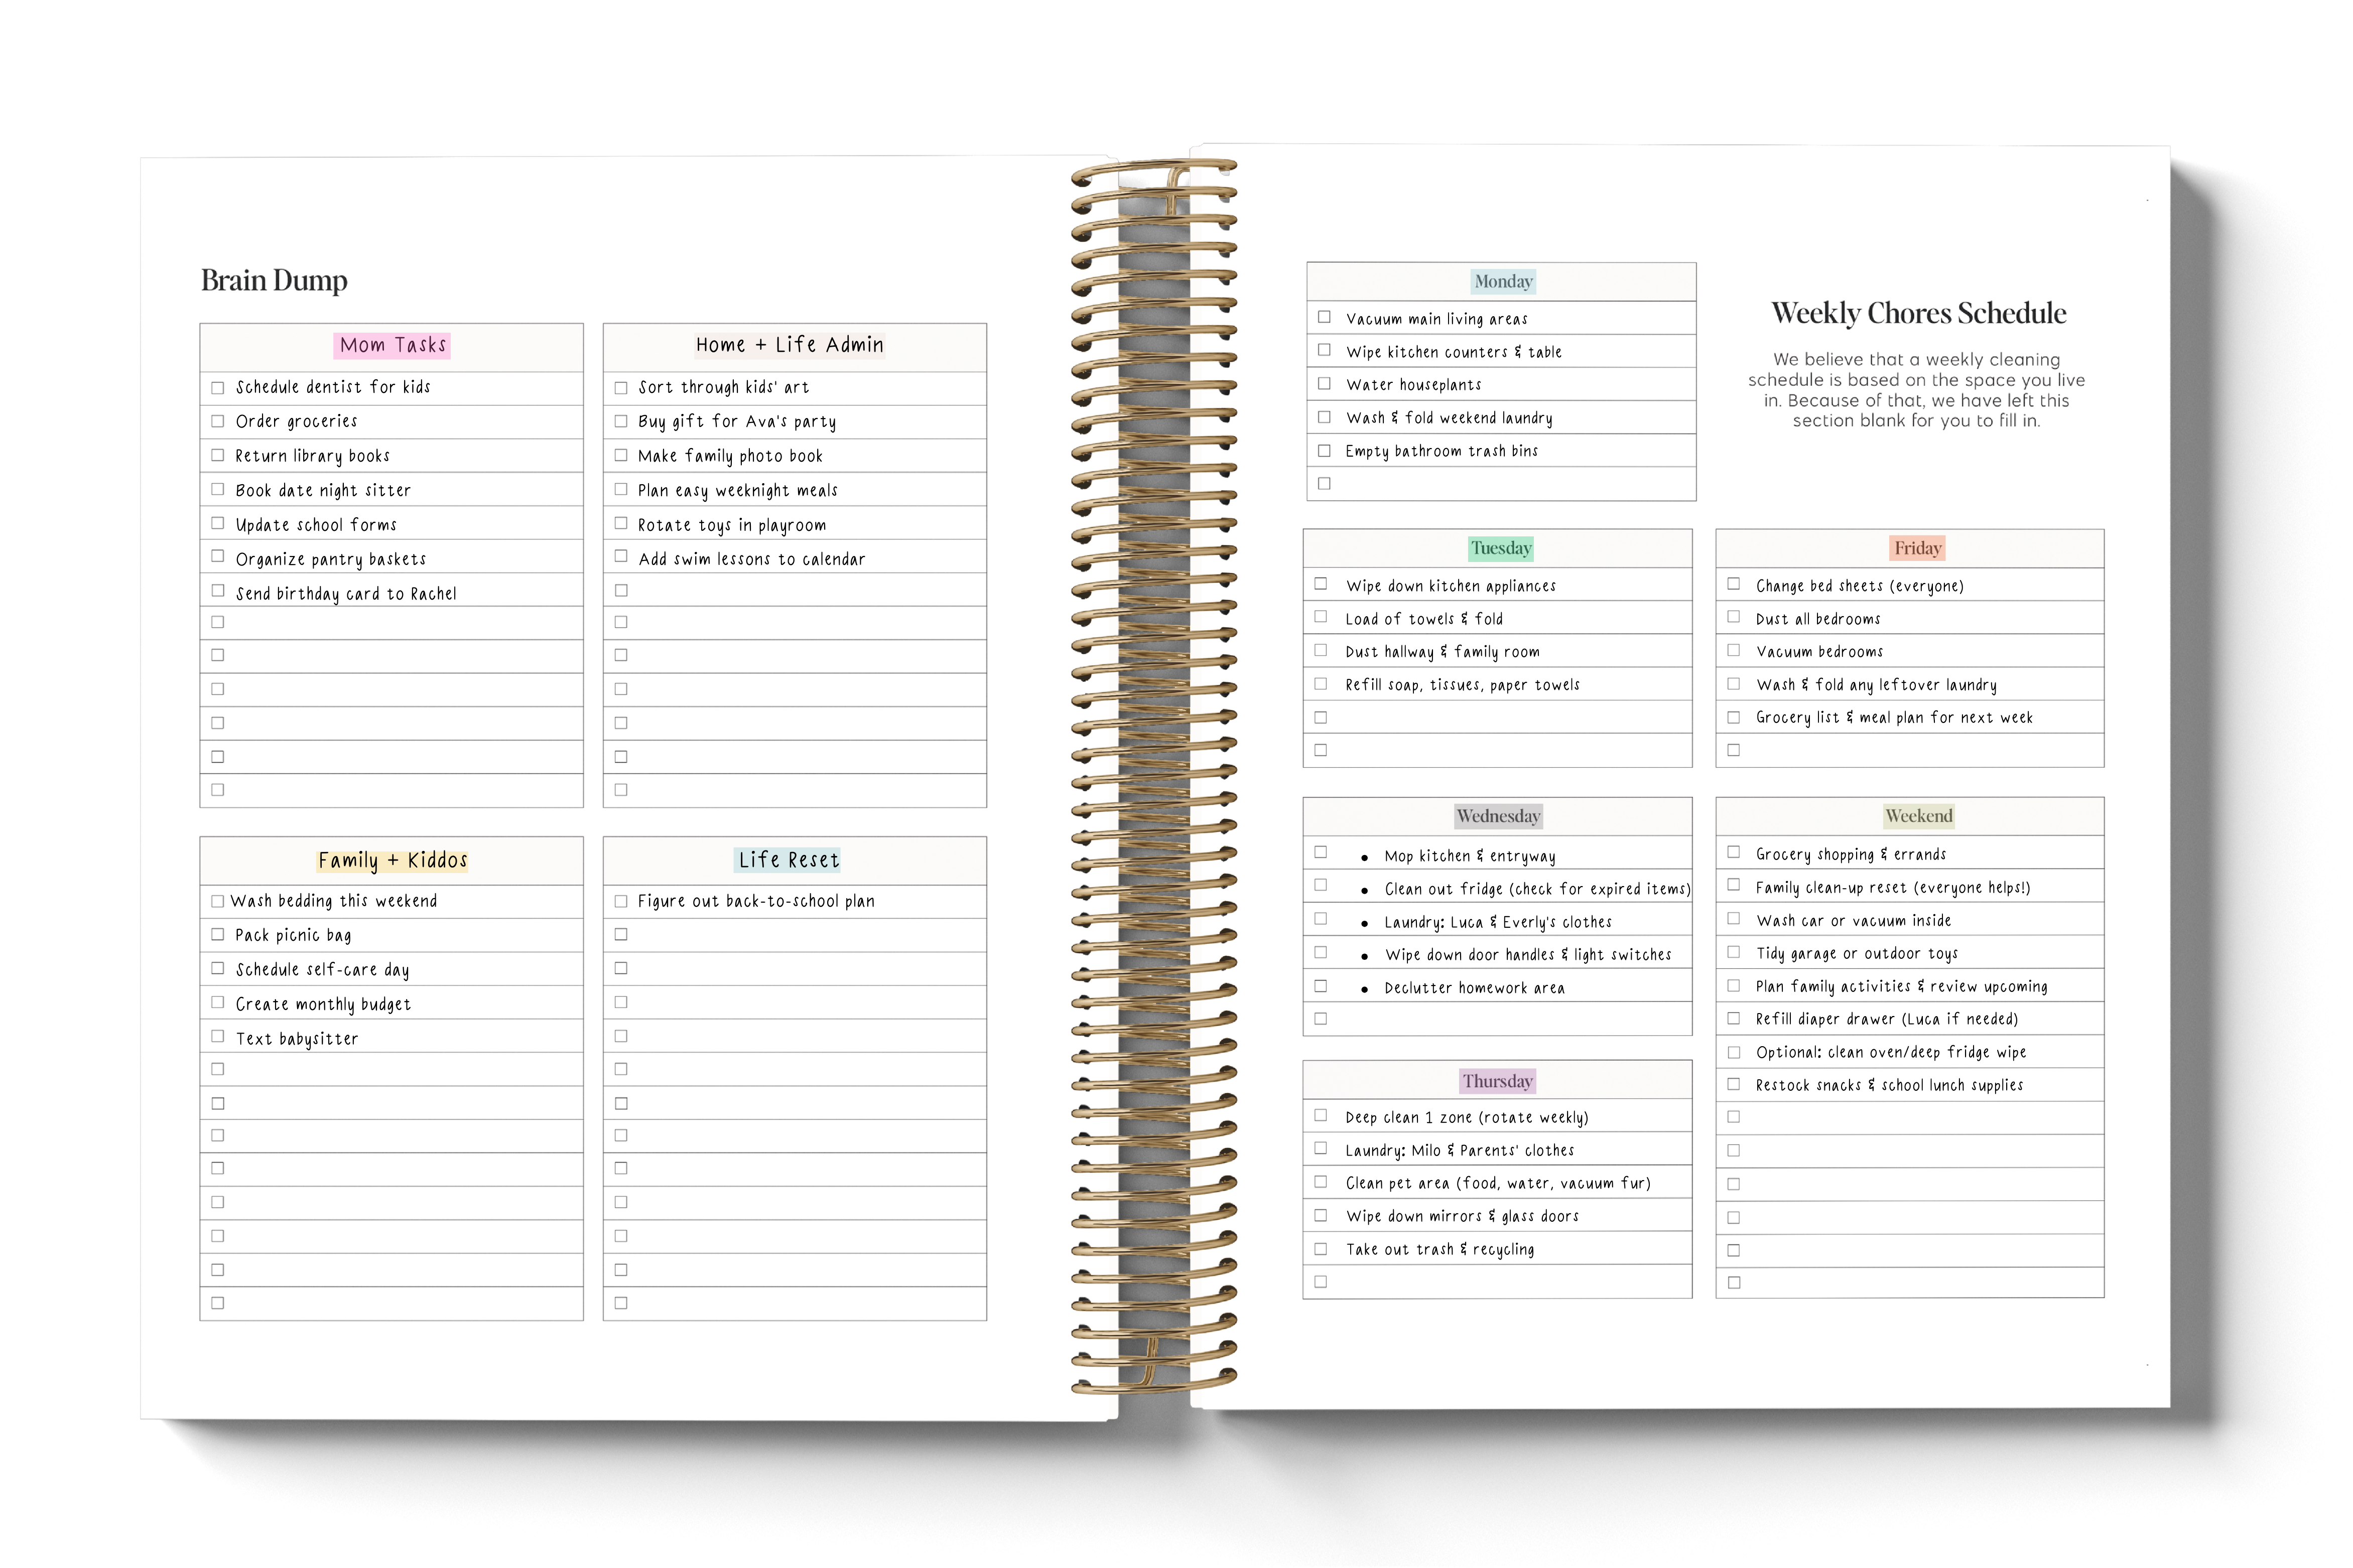 Brain Dump
Mom Tasks
Schedule dentist for kids
Order groceries
Return library books
Book date night sitter
Update school forms
Organize pantry baskets
Send birthday card to Rachel
Home + Life Admin
Sort through kids' art
Buy gift for Ava's party
Make family photo book
Plan easy weeknight meals
Rotate toys in playroom
Add swim lessons to calendar
Family + Kiddos
Wash bedding this weekend
Pack picnic bag
Schedule self-care day
Create monthly budget
Text babysitter
Life Reset
Figure out back-to-school plan
Weekly Chores Schedule
We believe that a weekly cleaning
schedule is based on the space you live
in. Because of that, we have left this
section blank for you to fill in.
Monday
Vacuum main living areas
Wipe kitchen counters & table
Water houseplants
Wash & fold weekend laundry
Empty bathroom trash bins
Tuesday
Wipe down kitchen appliances
Load of towels & fold
Dust hallway & family room
Refill soap, tissues, paper towels
Wednesday
• Mop kitchen & entryway
• Clean out fridge (check for expired items)
• Laundry: Luca & Everly's clothes
• Wipe down door handles & light switches
• Declutter homework area
Thursday
Deep clean 1 zone (rotate weekly)
Laundry: Milo & Parents' clothes
Clean pet area (food, water, vacuum fur)
Wipe down mirrors & glass doors
Take out trash & recycling
Friday
Change bed sheets (everyone)
Dust all bedrooms
Vacuum bedrooms
Wash & fold any leftover laundry
Grocery list & meal plan for next week
Weekend
Grocery shopping & errands
Family clean-up reset (everyone helps!)
Wash car or vacuum inside
Tidy garage or outdoor toys
Plan family activities & review upcoming
Refill diaper drawer (Luca if needed)
Optional: clean oven/deep fridge wipe
Restock snacks & school lunch supplies